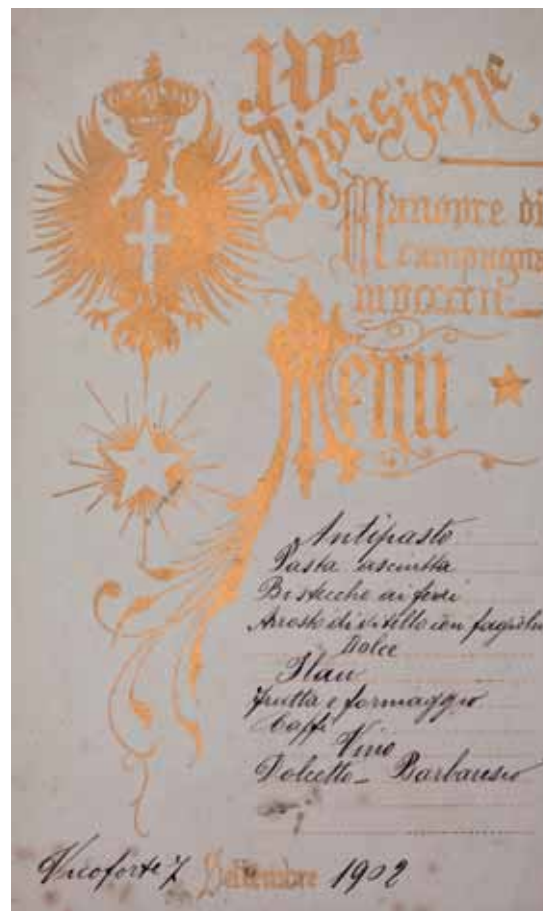 IVa
Divisione
Manovre di
campagna
MDCCCCII
Menu
Antipasto
Pasta asciutta
Bistecche ai ferri
Arrosto di vitello con fagiolini
Dolce
Flan
Frutta e formaggio
Caffè
Vino
Dolcetto - Barbaresco
Vicoforte 7 Settembre 1902